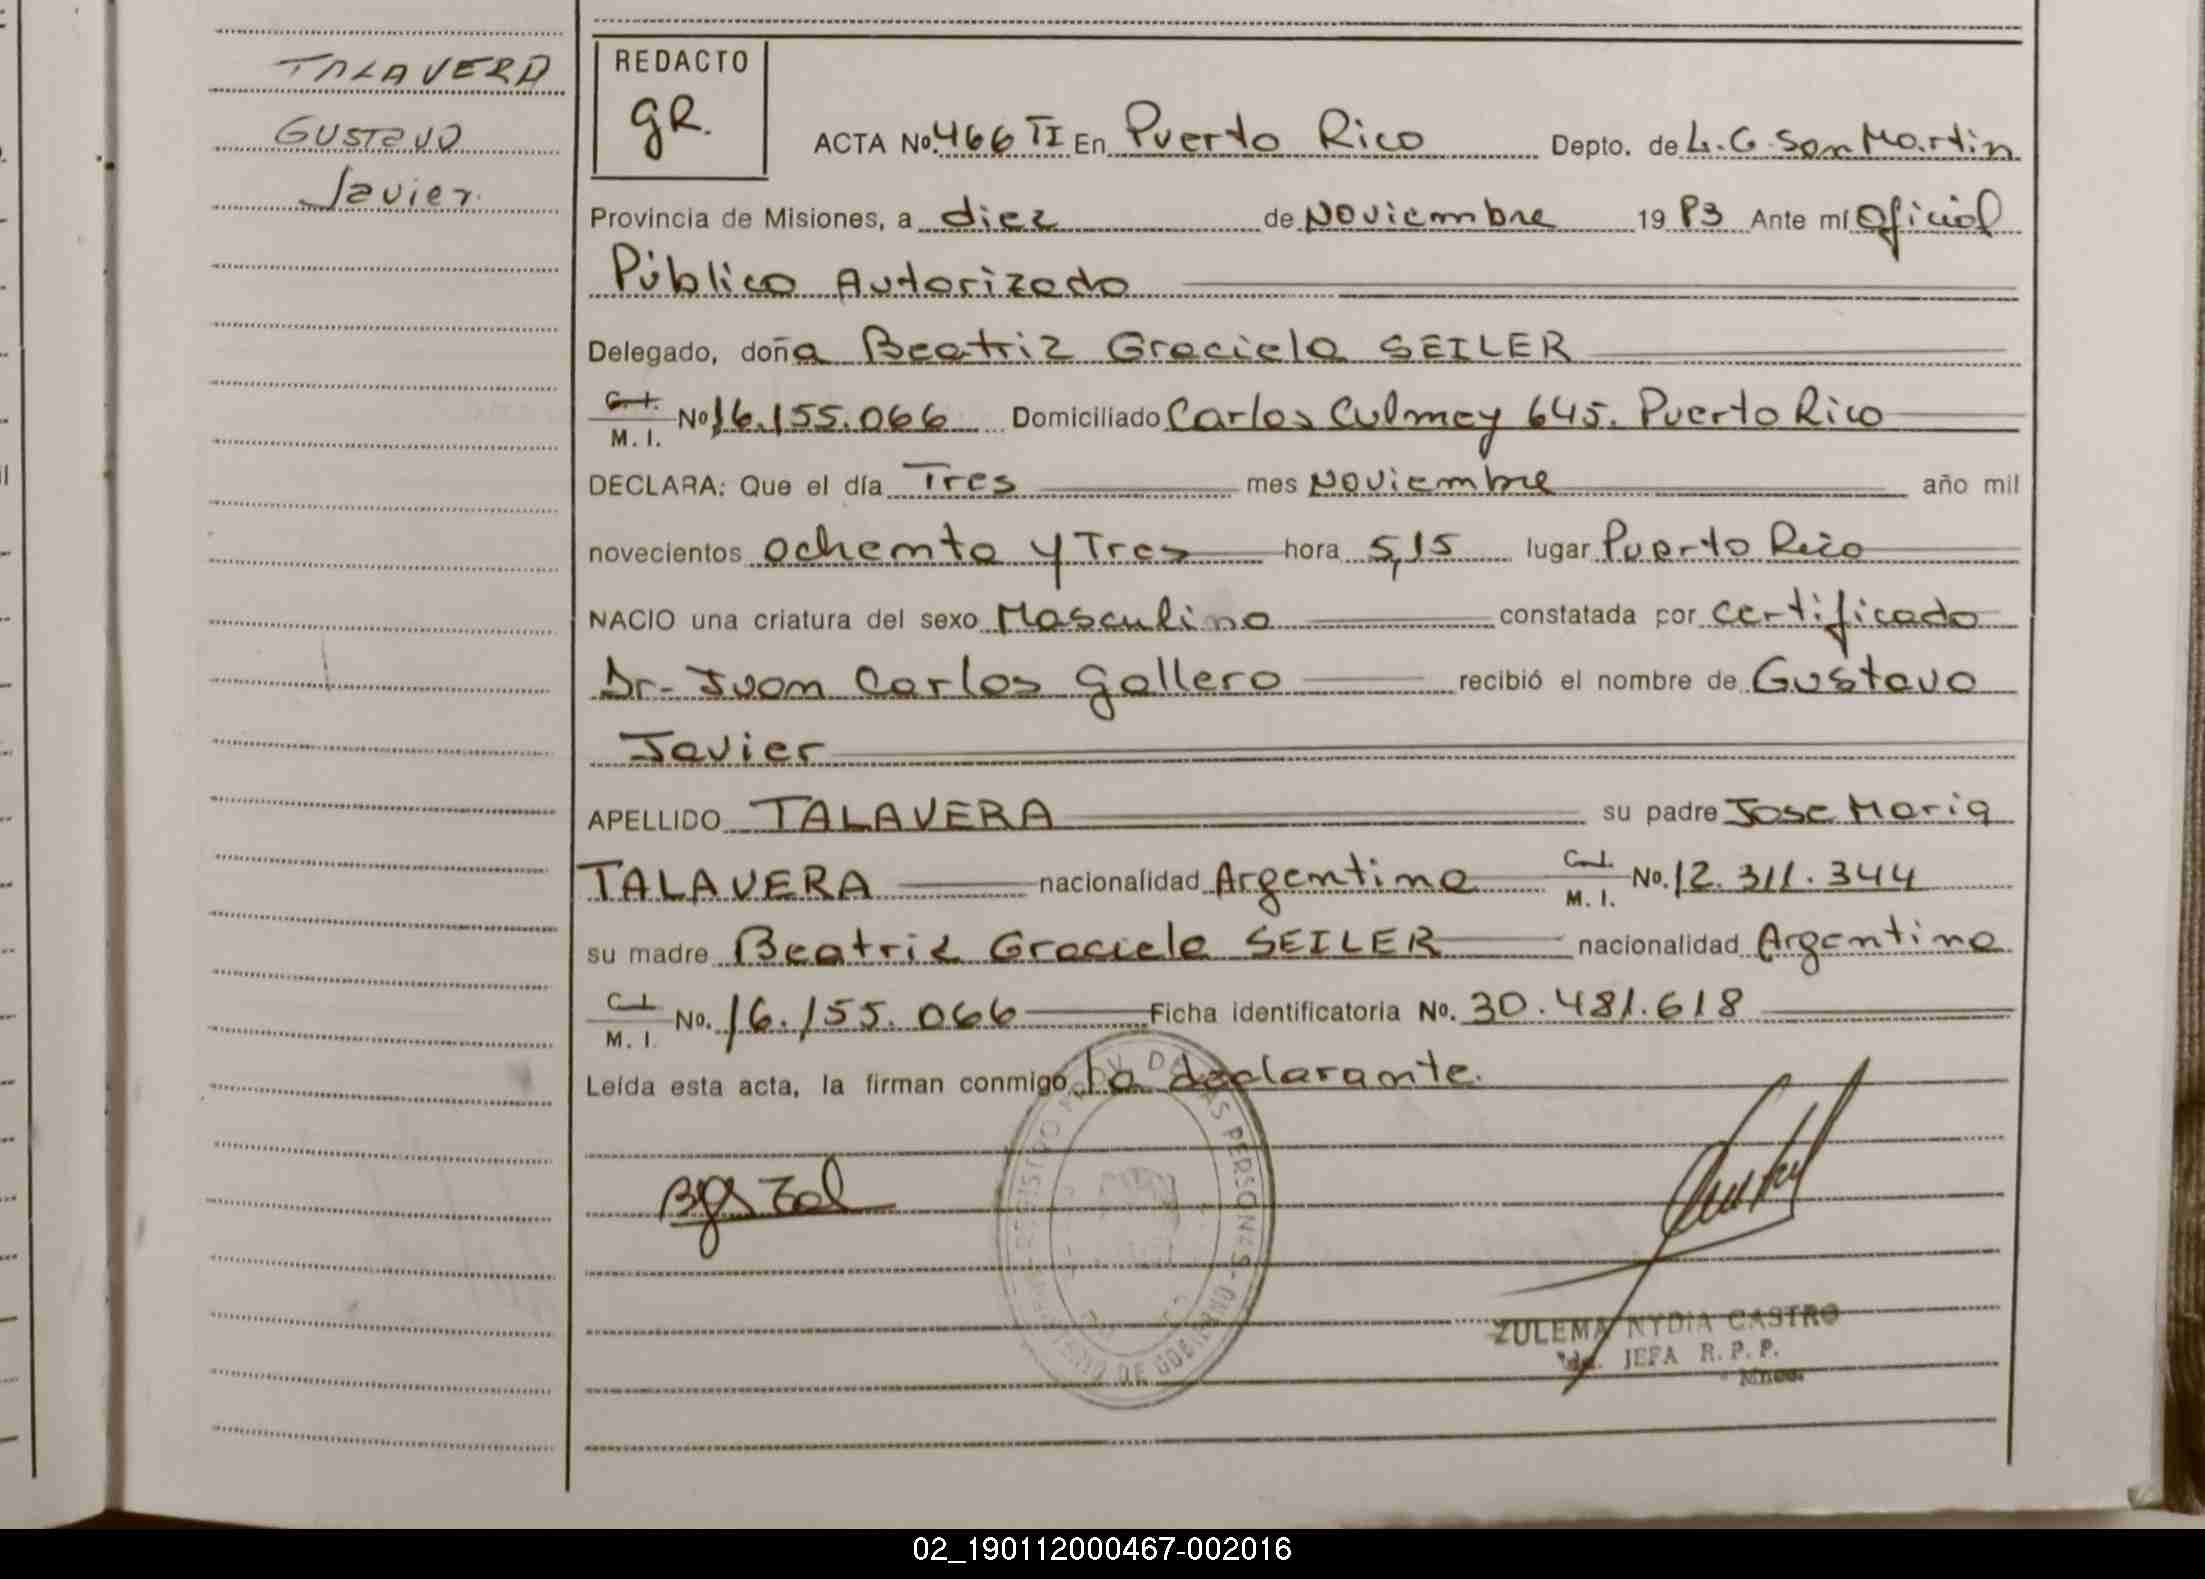 TALAVERA
GUSTAVO
Javier.
REDACTO
gR.
ACTA No. 466 TI En Puerto Rico Depto. de L. G. San Martin
Provincia de Misiones, a diez de Noviembre 19 83 Ante mí Oficial
Público Autorizado
Delegado, doña Beatriz Graciela SEILER
C. I.
M. I. No 16.155.066 Domiciliado Carlos Culmey 645. Puerto Rico
DECLARA: Que el día Tres mes Noviembre año mil
novecientos ochenta y Tres hora 5,15 lugar Puerto Rico
NACIO una criatura del sexo Masculino constatada por certificado
Dr. Juan Carlos gallero recibió el nombre de Gustavo
Javier
APELLIDO TALAVERA su padre Jose Maria
TALAVERA nacionalidad Argentina C. I.
M. I. No. 12.311.344
su madre Beatriz Graciela SEILER nacionalidad Argentina
C. I.
M. I. No. 16.155.066 Ficha identificatoria No. 30.481.618
Leída esta acta, la firman conmigo la declarante.
ZULEMA NYDIA CASTRO
JEFA R. P. P.
02_190112000467-002016